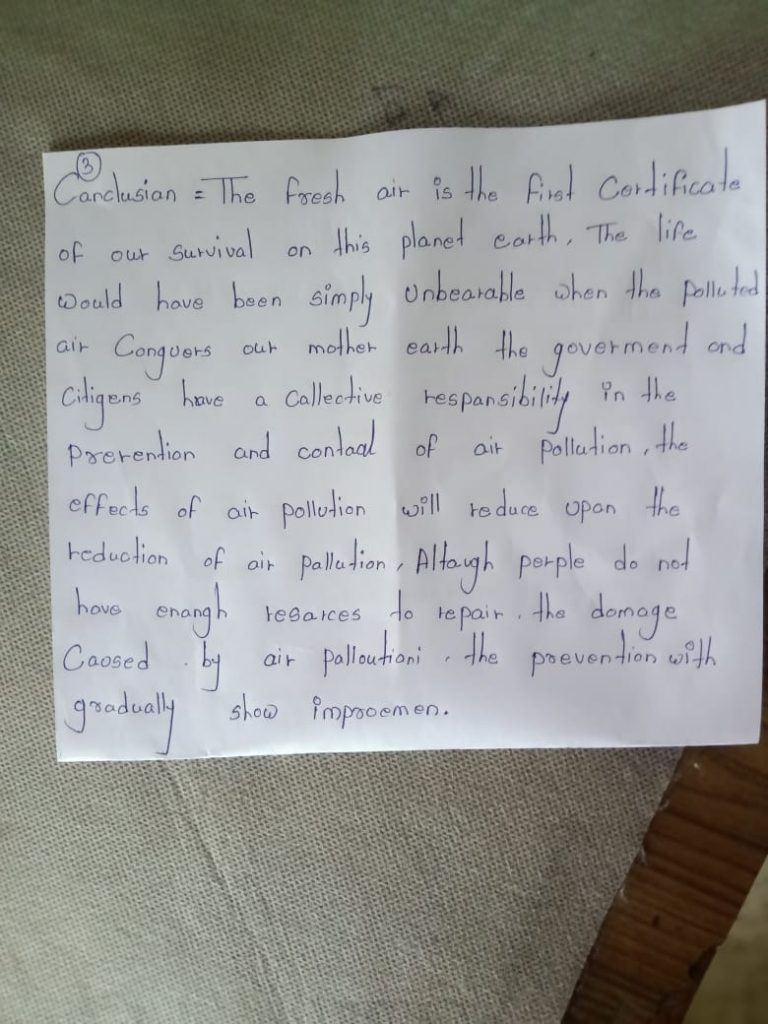 ③
Canclusian = The fresh air is the first Certificate
of our survival on this planet earth, The life
would have been simply Unbearable when the polluted
air Conquers our mother earth the goverment and
Citigens have a Callective respansibility in the
prevention and contaol of air pollution, the
effects of air pollution will reduce upon the
reduction of air pallution, Altaugh perple do not
have enangh resarces to repair. the damage
Caosed . by air palloutioni . the prevention with
gradually show improemen.